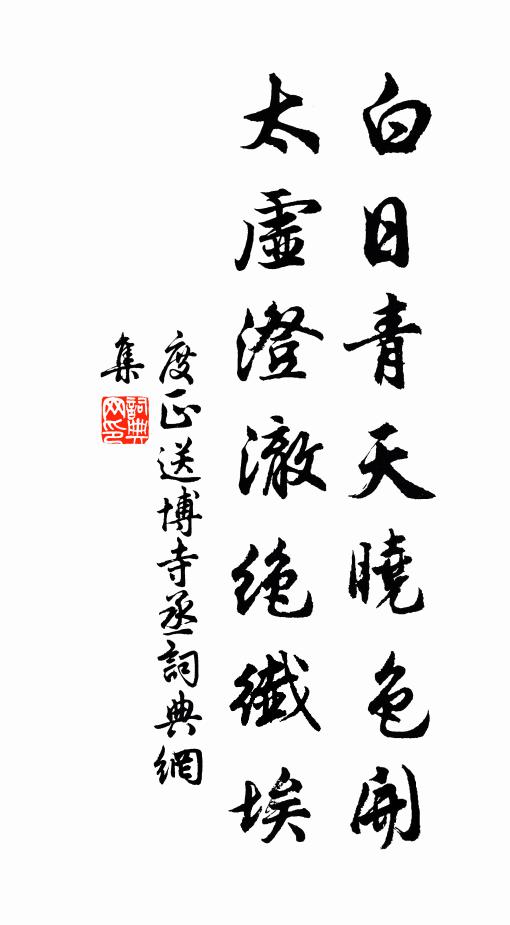 白日青天曉色開
太虛澄澈絶纖埃
度正送博寺丞詞典網
集
詞典
网印